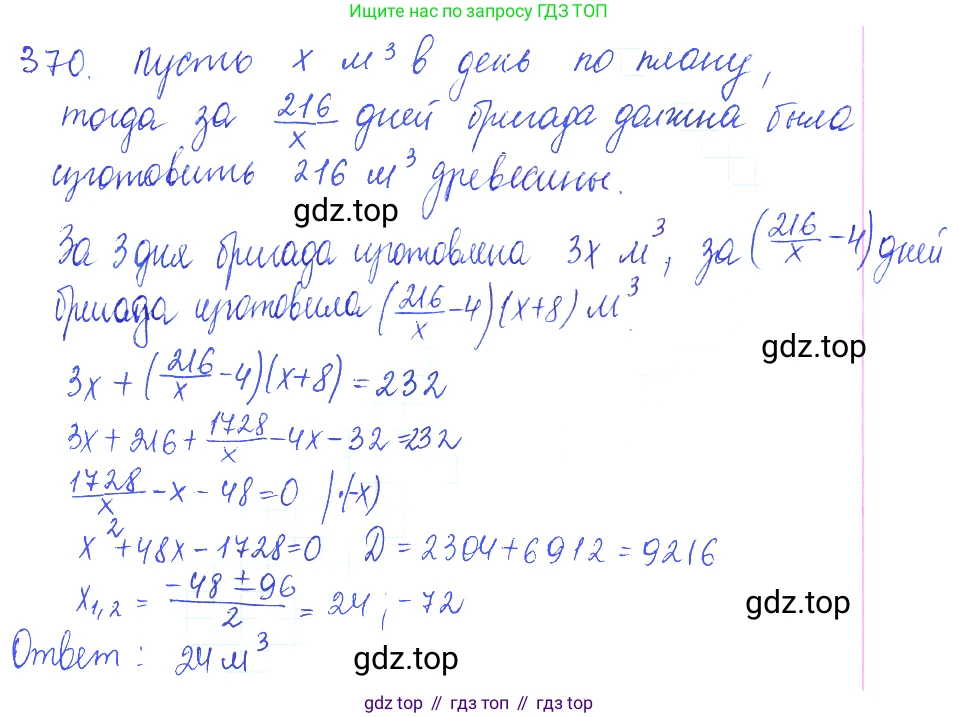 Ищите нас по запросу ГДЗ ТОП
370. Пусть x м³ в день по плану,
тогда за 216/x дней бригада должна была
изготовить 216 м³ древесины.
gdz.top
За 3 дня бригада изготовлена 3x м³, за (216/x - 4) дней
бригада изготовила (216/x - 4)(x+8) м³
gdz.top
3x + (216/x - 4)(x+8) = 232
3x + 216 + 1728/x - 4x - 32 = 232
1728/x - x - 48 = 0 |·(-x)
x² + 48x - 1728 = 0 D = 2304 + 6912 = 9216
x₁,₂ = (-48 ± 96)/2 = 24; -72
gdz.top
Ответ: 24 м³
gdz.top
gdz top // гдз топ // gdz top // гдз топ